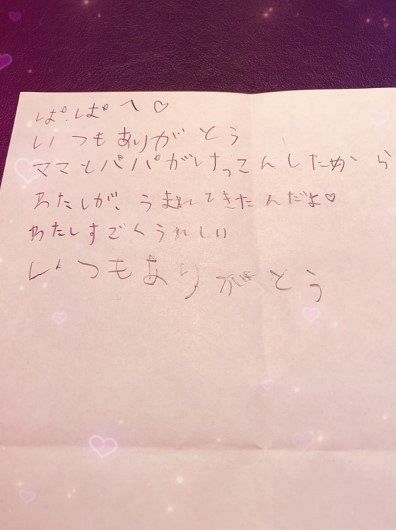 ぱぱへ♡
いつもありがとう
ママとパパがけっこんしたから
わたしが、うまれてきたんだよ♡
わたしすごくうれしい
いつもありがとう